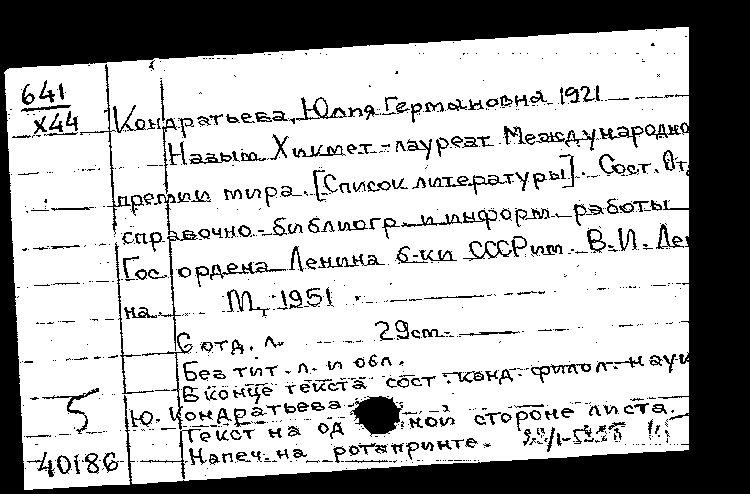 641
Х44
Кондратьева, Юлия Германовна 1921
Назым Хикмет - лауреат Международно
премии мира. [Список литературы]. Сост. От
справочно-библиогр. и информ. работы
Гос ордена Ленина б-ки СССР им. В.И. Ле
на М., 1951.
6 отд. л. 29 см.
Без тит. л. и обл.
В конце текста сост. канд. филол. наук
Ю. Кондратьева.
5
Текст на од ной стороне листа.
Напеч. на ротапринте.
40186